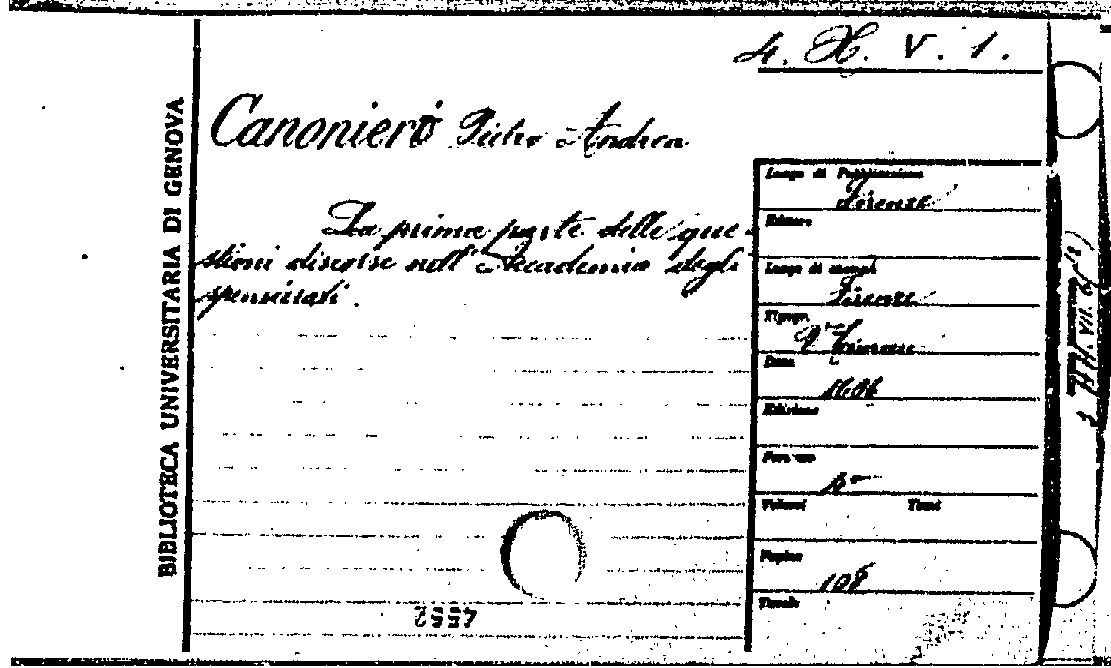 4. H. V. 1.
BIBLIOTECA UNIVERSITARIA DI GENOVA
Canoniero Pietro Andrea
La prima parte delle que-
stioni discorse nell' Accademia degli
spensierati.
Luogo di Pubblicazione
Firenze
Editore
Luogo di stampa
Firenze
Tipogr.
Data
1606
Edizione
Formato
Volumi Tomi
Pagine
108
Tavole
4552